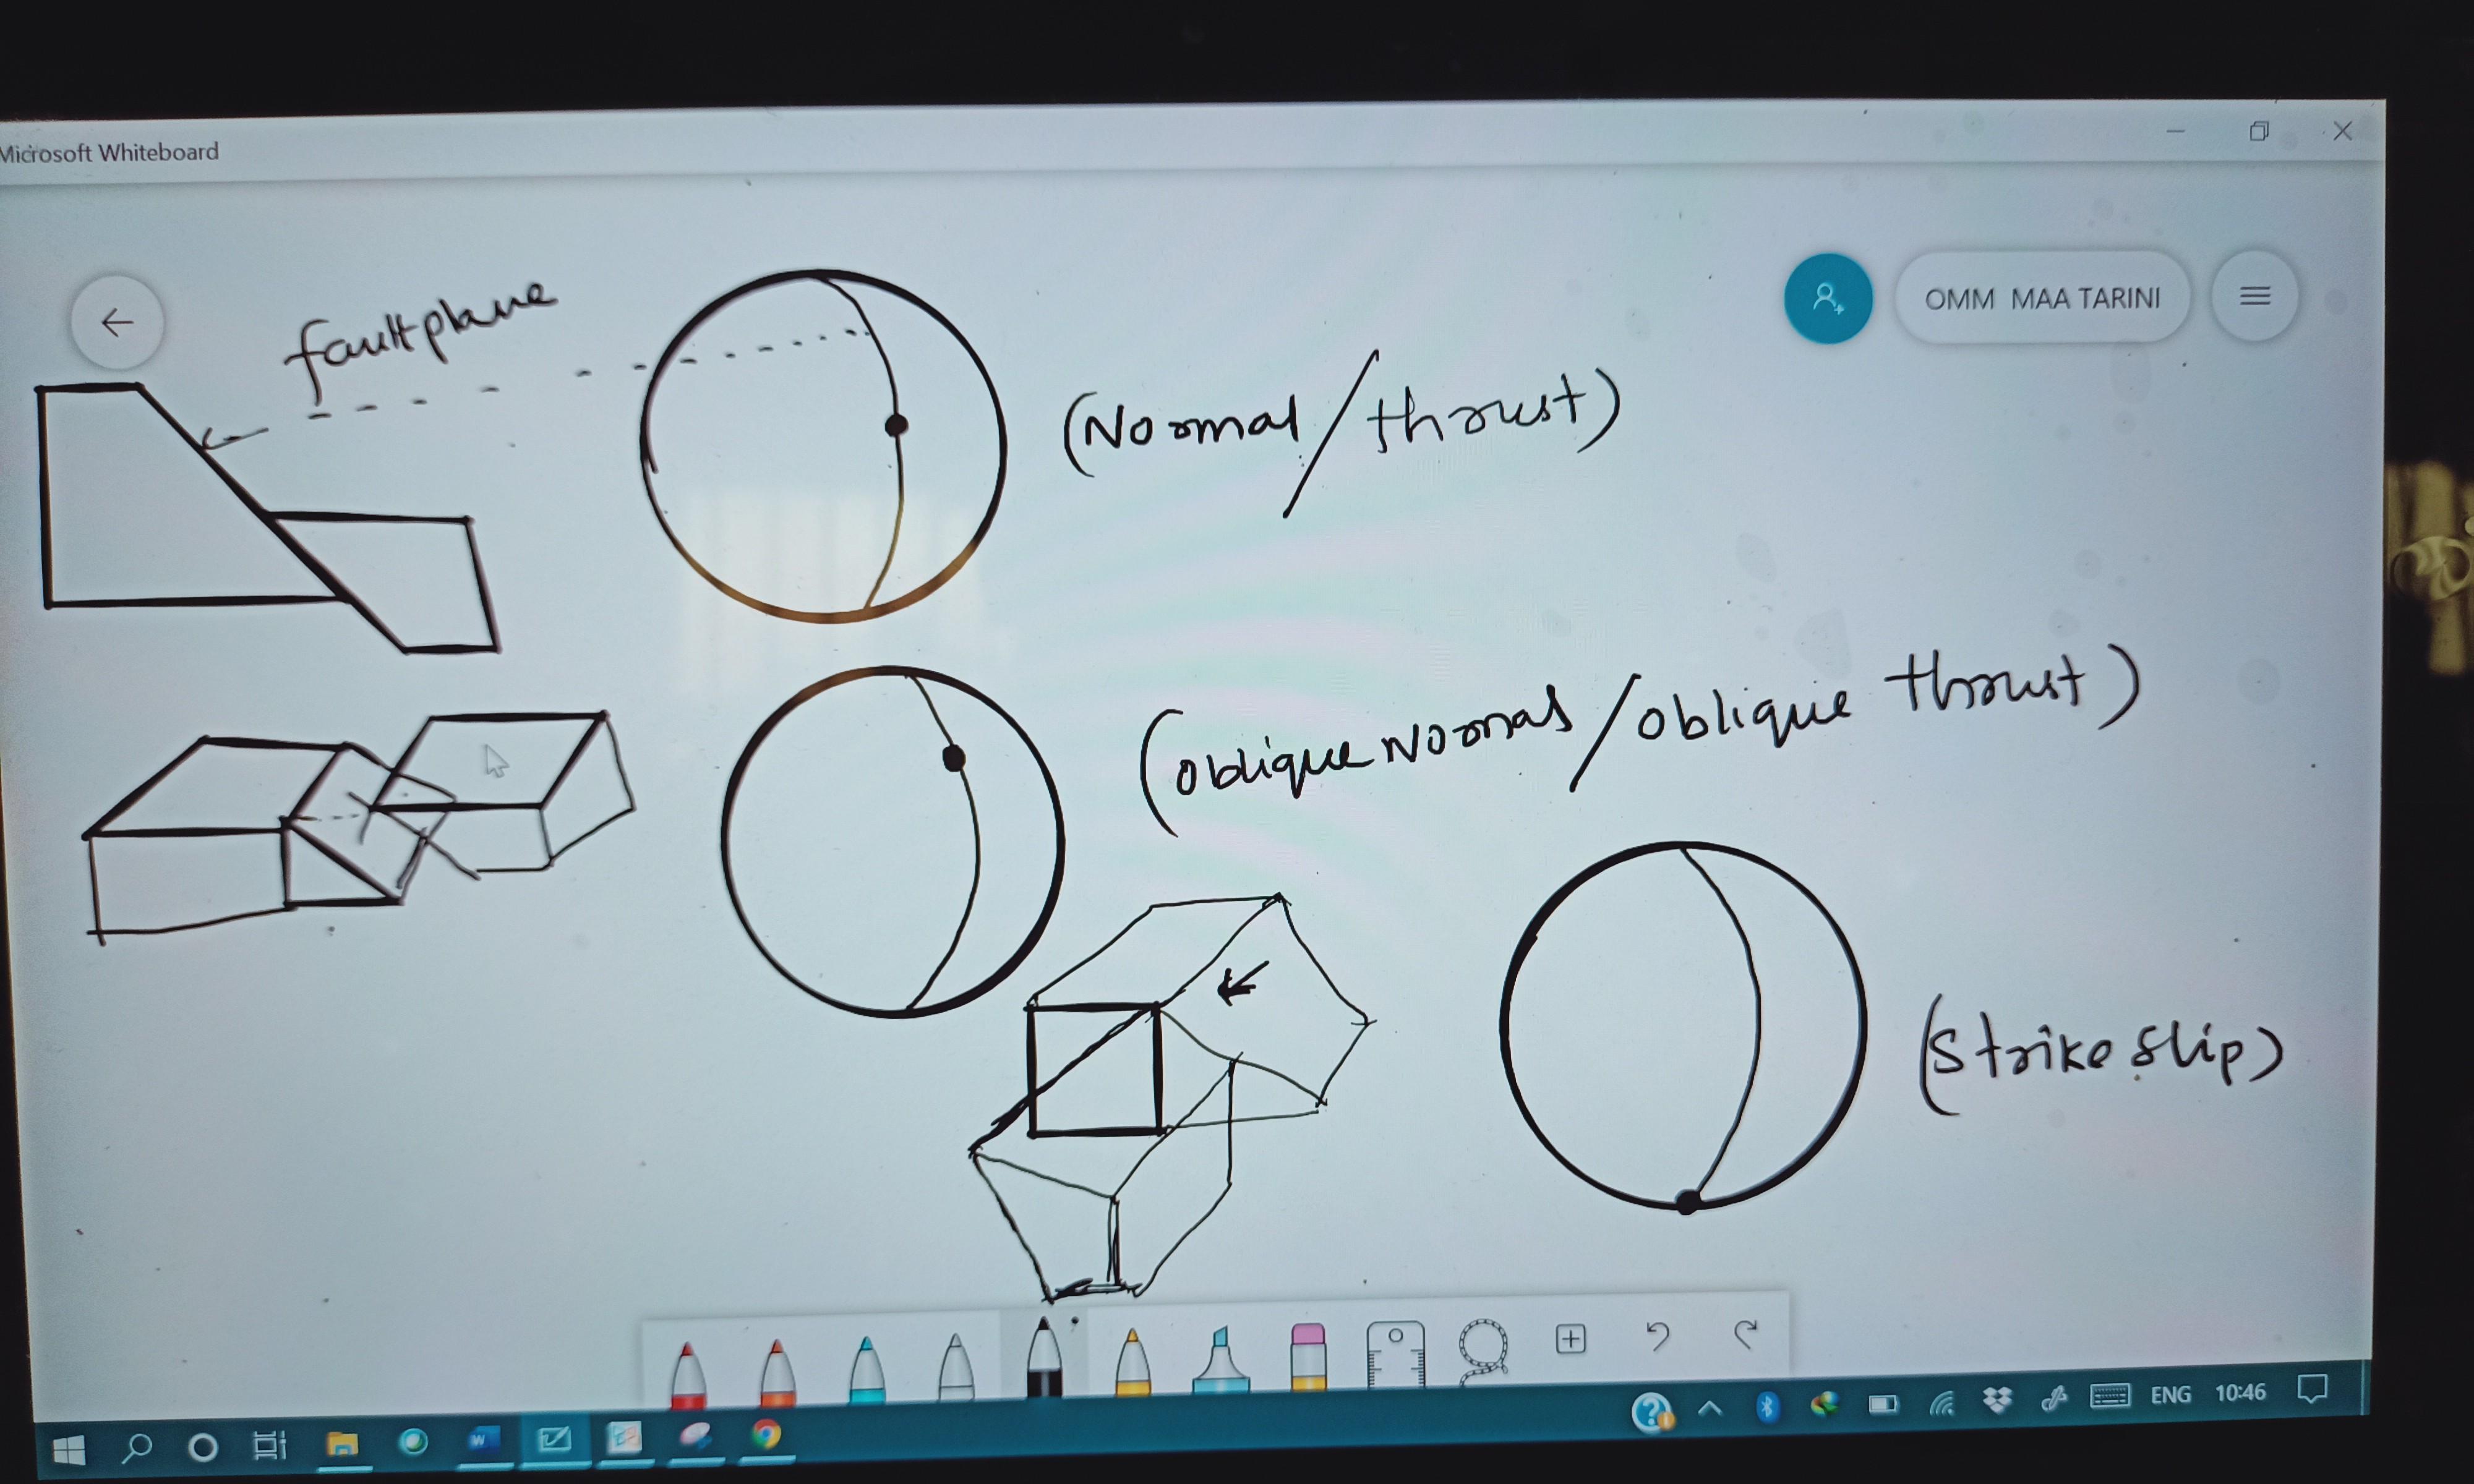 Microsoft Whiteboard
OMM MAA TARINI
fault plane
(Normal/thrust)
(oblique Normal/oblique thrust)
(Strike slip)
ENG 10:46